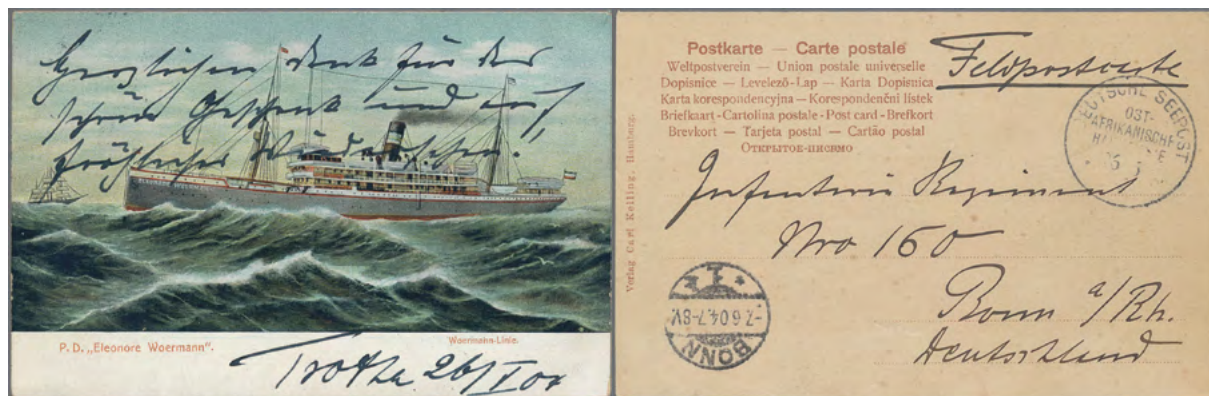 Herzlichen Dank für das
schöne Geschenk und auf
fröhliches Wiedersehn.
ELEONORE WOERMANN
P. D. „Eleonore Woermann“.
Woermann-Linie.
Trotha 26/V 04
Verlag Carl Kelling, Hamburg.
Postkarte — Carte postale
Weltpostverein — Union postale universelle
Dopisnice — Levelező-Lap — Karta Dopisnica
Karta korespondencyjna — Korespondenční lístek
Briefkaart - Cartolina postale - Post card - Brefkort
Brevkort — Tarjeta postal — Cartão postal
Открытое-письмо
Feldpostkarte
DEUTSCHE SEEPOST
OST-
AFRIKANISCHE
Infanterie Regiment
Nro 160
Bonn a/Rh.
Deutschland
BONN
7.6.04.7-8V.